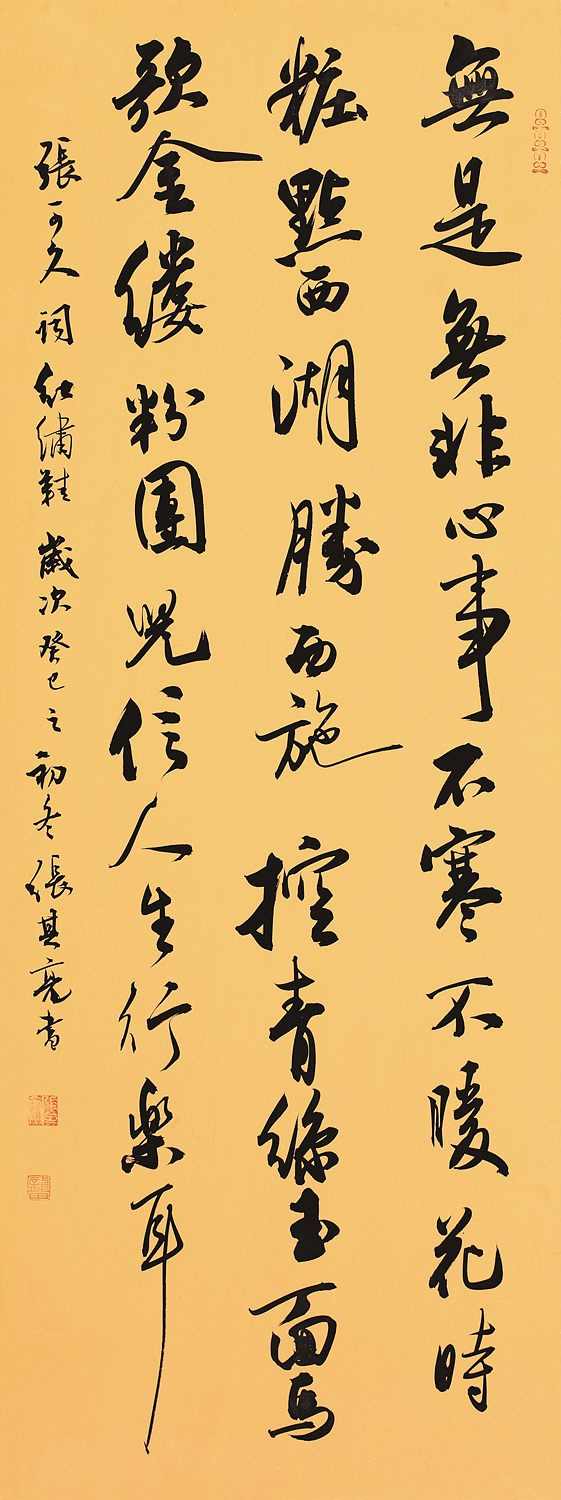 無是無非心事不寒不暖花時
粧點西湖勝西施控青絲玉面馬
歌金缕粉團兒信人生行樂耳
張可久词紅繡鞋歲次癸巳之初冬張其亮书